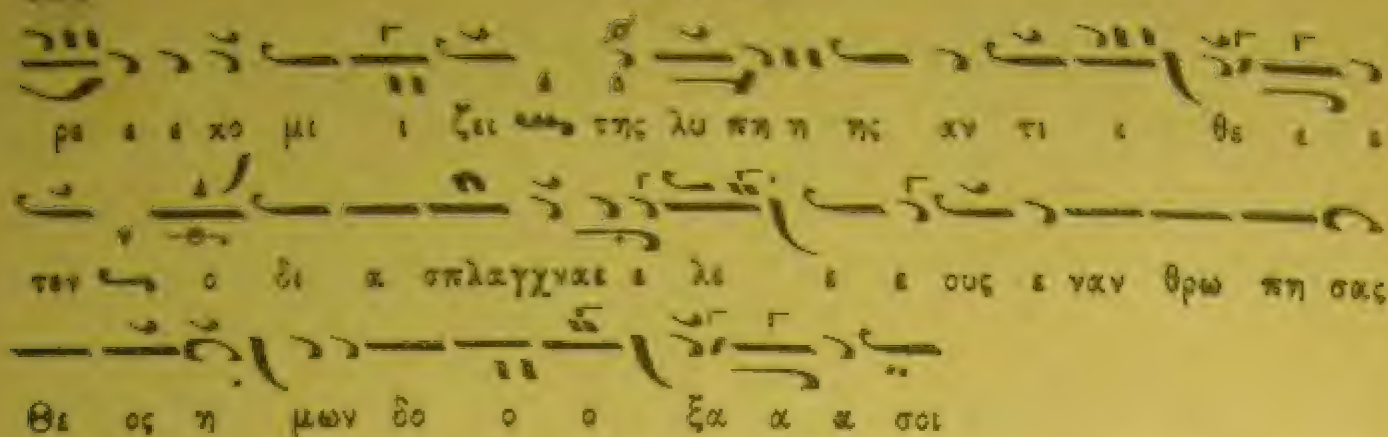 ρε ε ε κο μι ι ζει της λυ πη η ης αν τι ι θε ε ε
τεν ο δι α σπλαγχναε ε λε ε ε ους ε ναν θρω πη σας
Θε ος η μων δο ο ο ξα α α σοι